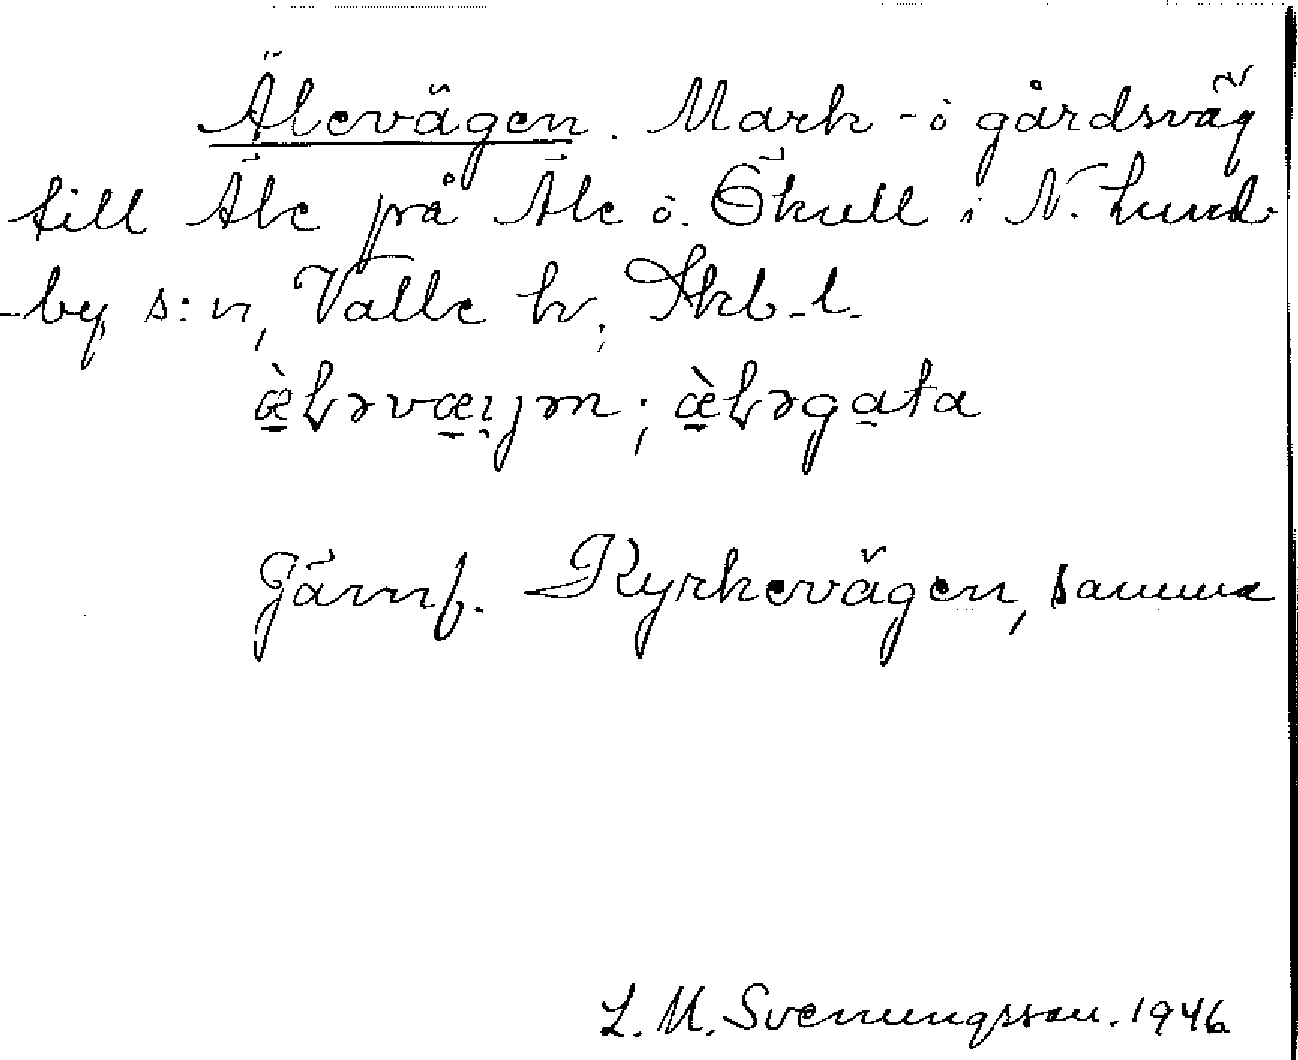 Älevägen. Mark- o gårdsväg
till Äle på Äle o. Ökull i N. Lund-
-by s:n, Valle h; Skb. l.
æ̀ⱡəvæi̯jən; æ̀ⱡəgata
Jämf. Kyrkevägen, samma
L. M. Svenungsson. 1946